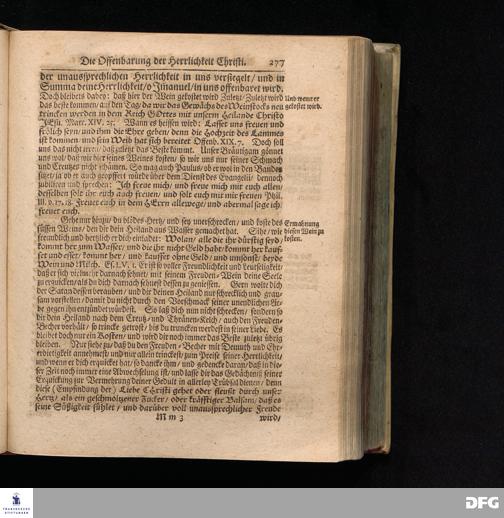 Die Offenbarung der Herrlichkeit Christi. 277
der unaussprechlichen Herrlichkeit in uns versiegelt / und in
Summa deine Herrlichkeit / o Jmanuel / in uns offenbaret wird.
Doch bleibets dabey: daß hier der Wein gekostet wird Zuletzt / Zuletzt wird
das beste kommen / auf den Tag / da wir das Gewächs des Weinstocks neu
trincken werden in dem Reich GOttes mit unserm Heilande Christo
JEsu. Matt. XIV. 25. Wann es heissen wird: Lasset uns freuen und
frölich seyn / und ihm die Ehre geben / denn die Hochzeit des Lammes
ist kommen / und sein Weib hat sich bereitet Offenb. XIX. 7. Doch soll
uns das nicht irren / daß zuletzt das Beste kömmt. Unser Bräutigam gönnet
uns wol / daß wir hier seines Weines kosten / so wir uns nur seiner Schmach
und Creutzes nicht schämen. So mag auch Paulus / ob er wol in den Banden
sitzet / ja ob er auch geopffert würde über dem Dienst des Evangelii / dennoch
jubiliren und sprechen: Ich freue mich / und freue mich mit euch allen /
desselben solt ihr euch auch freuen / und solt euch mit mir freuen Phil.
III. 9. 17. 18. Freuet euch in dem HErrn allewege / und abermal sage ich
freuet euch.
Gehe nun hinzu / du blödes Hertz / und sey unerschrocken / und koste des
süssen Weins / den dir dein Heiland aus Wasser gemacht hat. Sihe / wie
freundlich und hertzlich er dich einladet: Wolan / alle die ihr dürstig seyd /
kommt her zum Wasser / und die ihr nicht Geld habt / kommt her kauf-
fet und esset / kommt her / und kauffet ohne Geld / und umsonst / beyde
Wein und Milch. Es. LV. 1. Er ist so voller Freundlichkeit und Leutseligkeit /
daß er sich vielmehr darnach sehnet / mit seinem Freuden-Wein deine Seele
zu erquicken / als du dich darnach sehnest dessen zu geniessen. Gern wolte dich
der Satan dessen berauben / und dir deinen Heiland nur schrecklich und grau-
sam vorstellen / damit du nicht durch den Vorschmack seiner unendlichen Lie-
be gegen ihn entzündet würdest. So laß dich nun nicht schrecken / sondern so
dir dein Heiland nach dem Creutz- und Thränen-Kelch / auch den Freuden-
Becher vorhält / so trincke getrost / bis du truncken werdest in seiner Liebe. Es
bleibet doch nur ein Kosten / und wird dir noch immer das Beste zuletzt übrig
bleiben. Nur siehe zu / daß du den Freuden-Becher mit Demuth und Ehr-
erbietigkeit annehmest / und nur allein trinckest / zum Preise seiner Herrlichkeit /
und wenn er dich erquicket hat / so dancke ihm / und gedencke daran / daß in die-
ser Zeit noch immer eine Abwechselung ist / und lasse dir das Gedächtniß seiner
Erquickung zur Vermehrung deiner Gedult in allerley Trübsal dienen / denn
diese (Empfindung der) Liebe Christi gehet oder fleußt durch unser
Hertz / als ein geschmoltzener Zucker / oder kräfftiger Balsam / daß es
seine Süßigkeit fühlet / und darüber voll unaussprechlicher Freude
M m 3 wird /
Und wenn er
gekostet wird.
Ermahnung
diesen Wein zu
kosten.
FRANCKESCHE
STIFTUNGEN
DFG